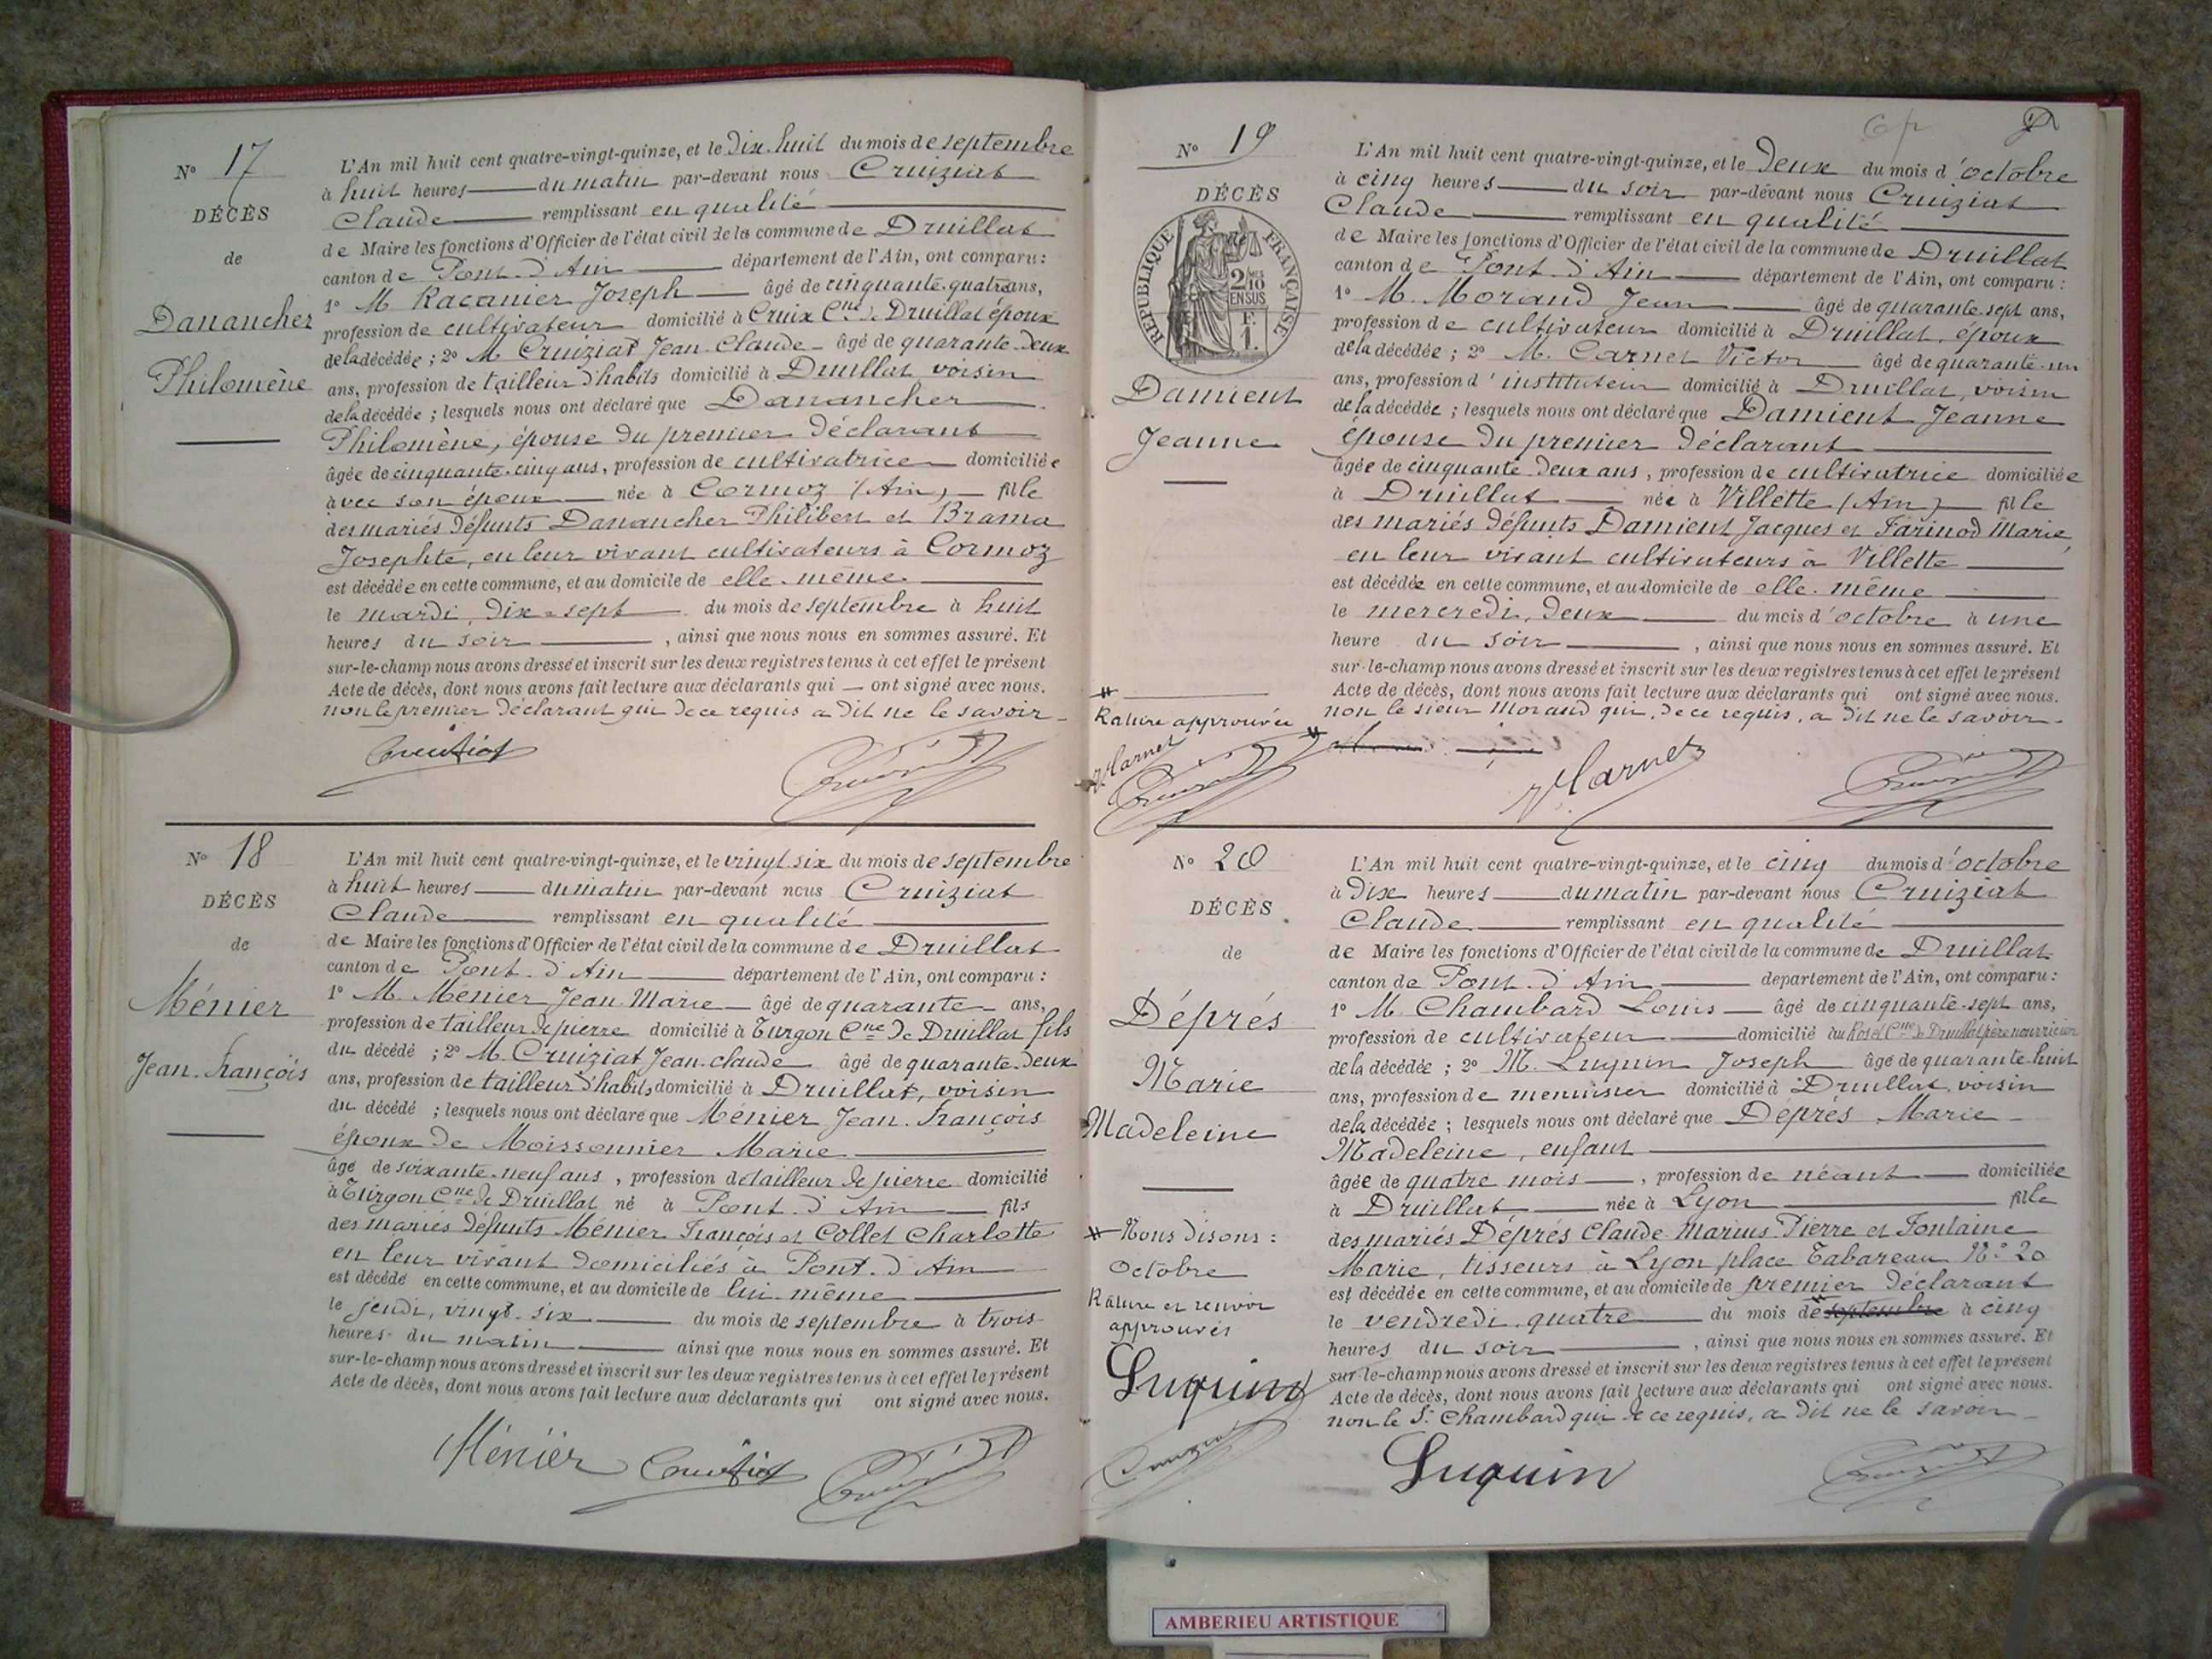 N° 17
DÉCÈS
de
Danancher
Philomène
L'An mil huit cent quatre-vingt-quinze, et le dix-huit du mois de septembre
à huit heures du matin par-devant nous Cruiziat
Claude remplissant en qualité
de Maire les fonctions d'Officier de l'état civil de la commune de Druillat
canton de Pont-d'Ain département de l'Ain, ont comparu :
1° M. Racanier Joseph âgé de cinquante-quatre ans,
profession de cultivateur domicilié à Cruix Cne de Druillat époux
de la décédée ; 2° M. Cruiziat Jean-Claude âgé de quarante-deux
ans, profession de tailleur d'habits domicilié à Druillat voisin
de la décédée ; lesquels nous ont déclaré que Danancher
Philomène, épouse du premier déclarant
âgée de cinquante-cinq ans, profession de cultivatrice domiciliée
avec son époux née à Cormoz (Ain) fille
des mariés défunts Danancher Philibert et Brama
Josephte, en leur vivant cultivateurs à Cormoz
est décédée en cette commune, et au domicile de elle-même
le mardi, dix-sept du mois de septembre à huit
heures du soir , ainsi que nous nous en sommes assuré. Et
sur-le-champ nous avons dressé et inscrit sur les deux registres tenus à cet effet le présent
Acte de décès, dont nous avons fait lecture aux déclarants qui — ont signé avec nous.
non le premier déclarant qui de ce requis a dit ne le savoir
Cruiziat
N° 18
DÉCÈS
de
Ménier
Jean-François
L'An mil huit cent quatre-vingt-quinze, et le vingt-six du mois de septembre
à huit heures du matin par-devant nous Cruiziat
Claude remplissant en qualité
de Maire les fonctions d'Officier de l'état civil de la commune de Druillat
canton de Pont-d'Ain département de l'Ain, ont comparu :
1° M. Ménier Jean-Marie âgé de quarante ans,
profession de tailleur de pierre domicilié à Turgon Cne de Druillat fils
du décédé ; 2° M. Cruiziat Jean-Claude âgé de quarante-deux
ans, profession de tailleur d'habits domicilié à Druillat, voisin
du décédé ; lesquels nous ont déclaré que Ménier Jean-François
époux de Moissonnier Marie
âgé de soixante-neuf ans, profession de tailleur de pierre domicilié
à Turgon Cne de Druillat né à Pont-d'Ain fils
des mariés défunts Ménier François et Collet Charlotte
en leur vivant domiciliés à Pont-d'Ain
est décédé en cette commune, et au domicile de lui-même
le jeudi, vingt-six du mois de septembre à trois
heures du matin ainsi que nous nous en sommes assuré. Et
sur-le-champ nous avons dressé et inscrit sur les deux registres tenus à cet effet le présent
Acte de décès, dont nous avons fait lecture aux déclarants qui ont signé avec nous.
Ménier Cruiziat
N° 19
DÉCÈS
REPUBLIQUE FRANÇAISE
2/10
EN SUS
F.
1.
Damient
Jeanne
L'An mil huit cent quatre-vingt-quinze, et le deux du mois d'octobre
à cinq heures du soir par-devant nous Cruiziat
Claude remplissant en qualité
de Maire les fonctions d'Officier de l'état civil de la commune de Druillat
canton de Pont-d'Ain département de l'Ain, ont comparu :
1° M. Morand Jean âgé de quarante-sept ans,
profession de cultivateur domicilié à Druillat, époux
de la décédée ; 2° M. Carnet Victor âgé de quarante-un
ans, profession d'instituteur domicilié à Druillat, voisin
de la décédée ; lesquels nous ont déclaré que Damient Jeanne
épouse du premier déclarant
âgée de cinquante-deux ans, profession de cultivatrice domiciliée
à Druillat née à Villette (Ain) fille
des mariés défunts Damient Jacques et Farinod Marie,
en leur vivant cultivateurs à Villette
est décédée en cette commune, et au domicile de elle-même
le mercredi, deux du mois d'octobre à une
heure du soir , ainsi que nous nous en sommes assuré. Et
sur-le-champ nous avons dressé et inscrit sur les deux registres tenus à cet effet le présent
Acte de décès, dont nous avons fait lecture aux déclarants qui ont signé avec nous.
non le sieur Morand qui, de ce requis, a dit ne le savoir
Rature approuvée
V Carnet
V Carnet
N° 20
DÉCÈS
de
Déprés
Marie
Madeleine
Nous disons :
Octobre
Rature et renvoi
approuvés
Luquin
L'An mil huit cent quatre-vingt-quinze, et le cinq du mois d'octobre
à dix heures du matin par-devant nous Cruiziat
Claude remplissant en qualité
de Maire les fonctions d'Officier de l'état civil de la commune de Druillat
canton de Pont-d'Ain département de l'Ain, ont comparu :
1° M. Chambard Louis âgé de cinquante-sept ans,
profession de cultivateur domicilié au Rosel Cne de Druillat père nourricier
de la décédée ; 2° M. Luquin Joseph âgé de quarante-huit
ans, profession de menuisier domicilié à Druillat, voisin
de la décédée ; lesquels nous ont déclaré que Déprés Marie
Madeleine, enfant
âgée de quatre mois , profession de néant domiciliée
à Druillat née à Lyon fille
des mariés Déprés Claude Marius Pierre et Fontaine
Marie, tisseurs à Lyon place Tabareau N° 20
est décédée en cette commune, et au domicile de premier déclarant
le vendredi, quatre du mois de septembre à cinq
heures du soir , ainsi que nous nous en sommes assuré. Et
sur-le-champ nous avons dressé et inscrit sur les deux registres tenus à cet effet le présent
Acte de décès, dont nous avons fait lecture aux déclarants qui ont signé avec nous.
non le Sr Chambard qui de ce requis, a dit ne le savoir
Luquin
AMBERIEU ARTISTIQUE